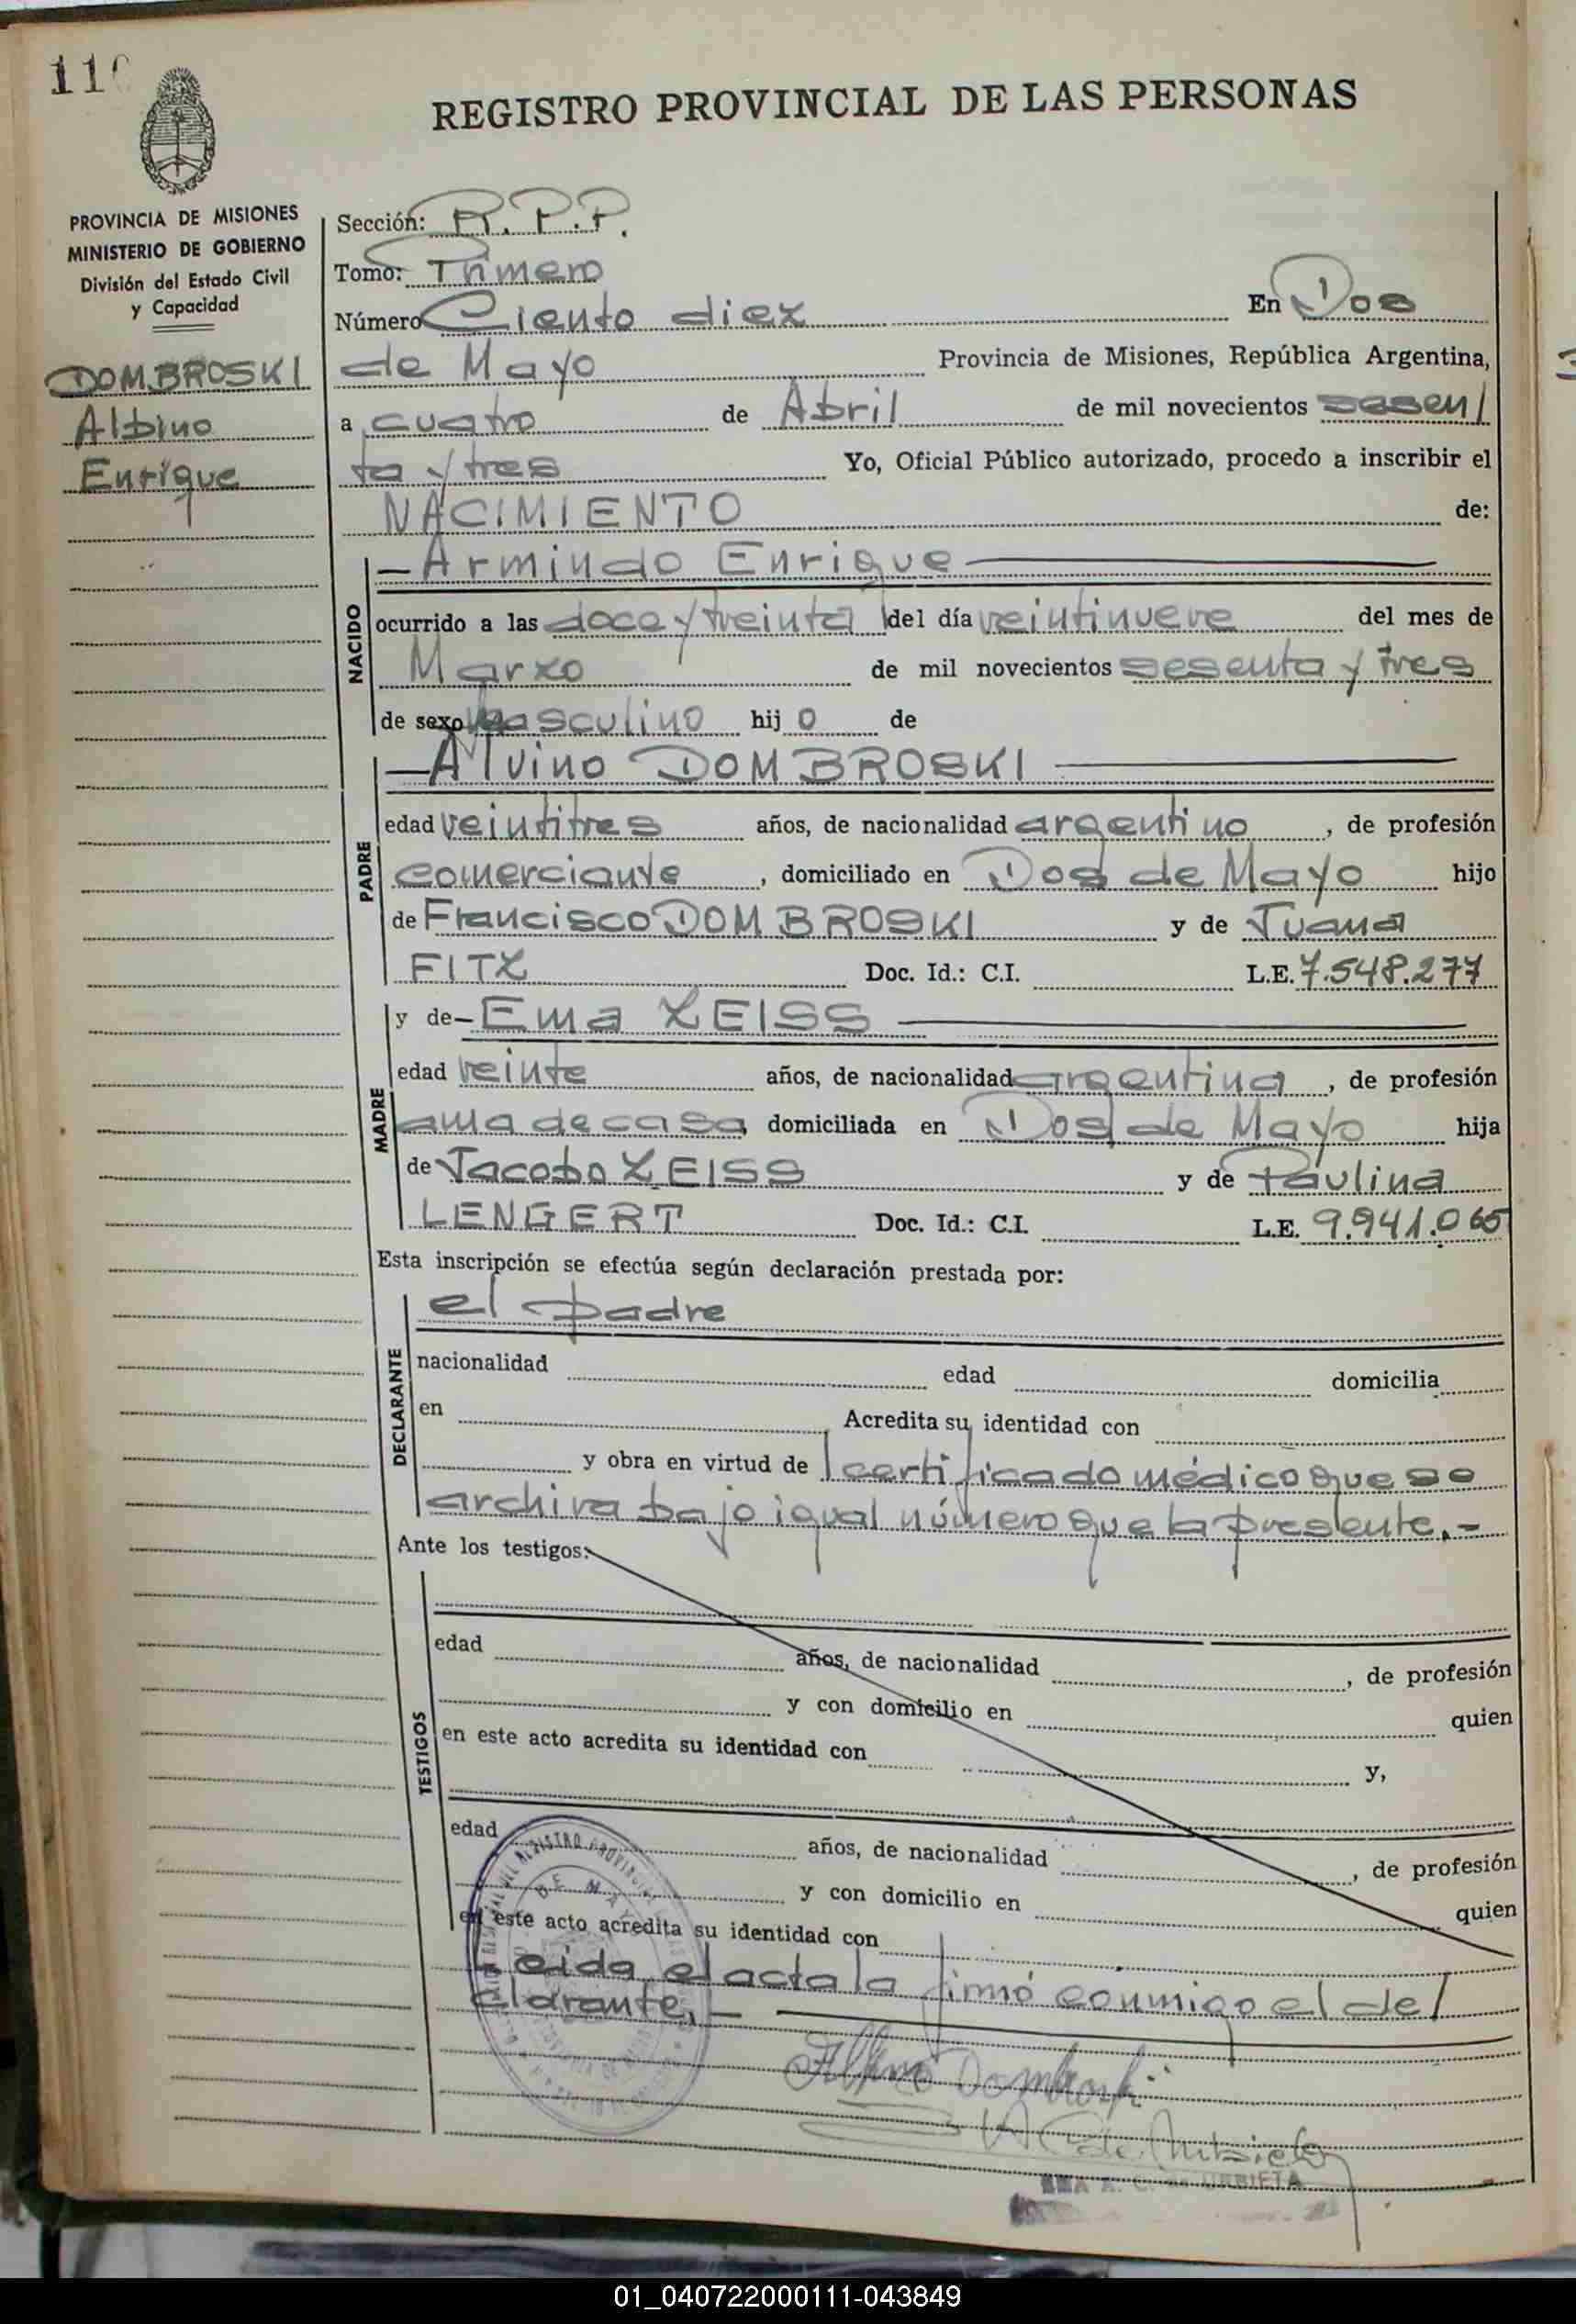 110
REGISTRO PROVINCIAL DE LAS PERSONAS
PROVINCIA DE MISIONES
MINISTERIO DE GOBIERNO
División del Estado Civil
y Capacidad
DOMBROSKI
Albino
Enrique
Sección: R.P.P.
Tomo: Primero
Número Ciento diez En Dos
de Mayo Provincia de Misiones, República Argentina,
a cuatro de Abril de mil novecientos sesen
ta y tres Yo, Oficial Público autorizado, procedo a inscribir el
NACIMIENTO de:
NACIDO
— Armindo Enrique —
ocurrido a las doce y treinta del día veintinueve del mes de
Marzo de mil novecientos sesenta y tres
de sexo masculino hijo de
PADRE
— Alvino DOMBROSKI —
edad veintitres años, de nacionalidad argentino, de profesión
comerciante, domiciliado en Dos de Mayo hijo
de Francisco DOMBROSKI y de Juana
FITZ Doc. Id.: C.I. L.E. 7.548.277
MADRE
y de — Ema ZEISS —
edad veinte años, de nacionalidad argentina, de profesión
ama de casa, domiciliada en Dos de Mayo hija
de Jacobo ZEISS y de Paulina
LENGERT Doc. Id.: C.I. L.E. 9.941.065
Esta inscripción se efectúa según declaración prestada por:
DECLARANTE
el padre
nacionalidad edad domicilia
en Acredita su identidad con
y obra en virtud de certificado médico que se
archiva bajo igual número que la presente.-
Ante los testigos:
TESTIGOS
edad años, de nacionalidad , de profesión
y con domicilio en quien
en este acto acredita su identidad con y,
edad años, de nacionalidad , de profesión
y con domicilio en quien
en este acto acredita su identidad con
Leida el acta la firmó conmigo el de
clarante.—
Dombroski
URBIETA
01_040722000111-043849